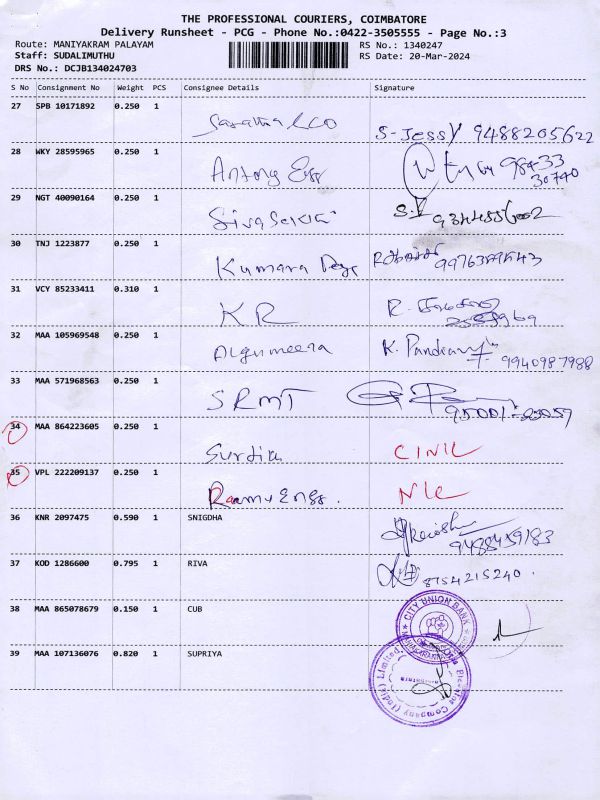 THE PROFESSIONAL COURIERS, COIMBATORE
Delivery Runsheet - PCG - Phone No.:0422-3505555 - Page No.:3
Route: MANIYAKRAM PALAYAM RS No.: 1340247
Staff: SUDALIMUTHU RS Date: 20-Mar-2024
DRS No.: DCJB134024703
S No Consignment No Weight PCS Consignee Details Signature
27 SPB 10171892 0.250 1
S-Jessy 9488205622
28 WKY 28595965 0.250 1
Antony Engg 98433
30740
29 NGT 40090164 0.250 1
Sivasakthi S.V
30 TNJ 1223877 0.250 1
Kumara
31 VCY 85233411 0.310 1
KR R.
32 MAA 105969548 0.250 1
Algumeera K. Pandian 9940987988
33 MAA 571968563 0.250 1
SRMT
34 MAA 864223605 0.250 1
35 VPL 222209137 0.250 1
Raamu Engg.
36 KNR 2097475 0.590 1 SNIGDHA
9488459183
37 KOD 1286600 0.795 1 RIVA
8754215240.
38 MAA 865078679 0.150 1 CUB
CITY UNION BANK
39 MAA 107136076 0.820 1 SUPRIYA
Company (India) Limited